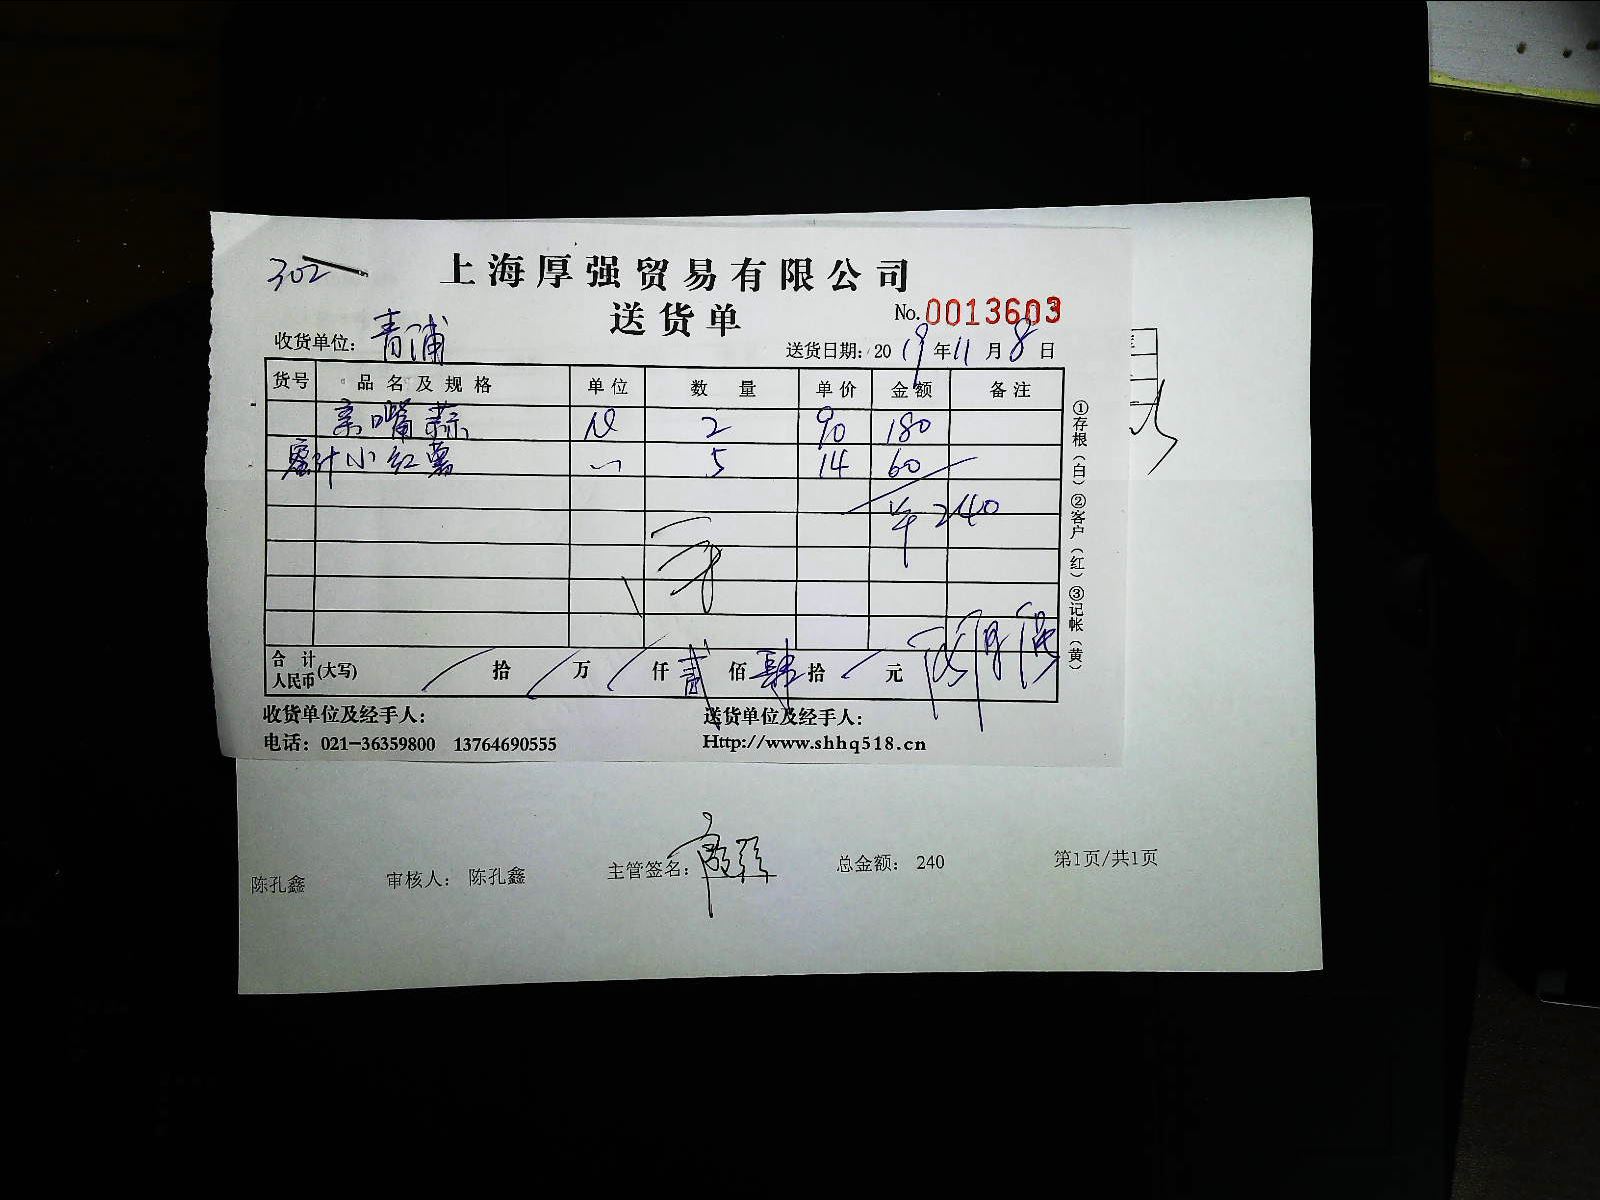 302
上海厚强贸易有限公司
送货单
No. 0013603
收货单位: 青浦
送货日期: 2019年11月8日
货号 品名及规格 单位 数量 单价 金额 备注
亲嘴蒜 2 90 180
蜜汁小红薯 5 14 60
240
合计人民币(大写) 拾 万 仟 贰 佰 肆 拾 元
①存根(白)②客户(红)③记帐(黄)
收货单位及经手人:
送货单位及经手人:
电话: 021-36359800 13764690555
Http://www.shhq518.cn
陈孔鑫 审核人: 陈孔鑫 主管签名: 总金额: 240 第1页/共1页